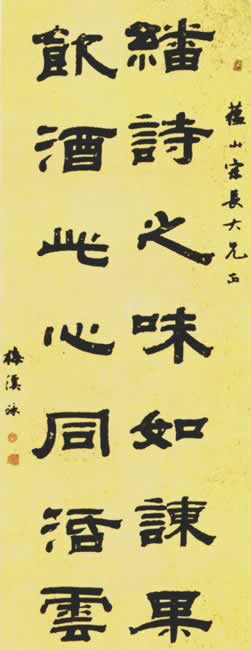 蘊山宗長大兄正
繙詩之味如諫果
飲酒此心同活雲
梅溪泳